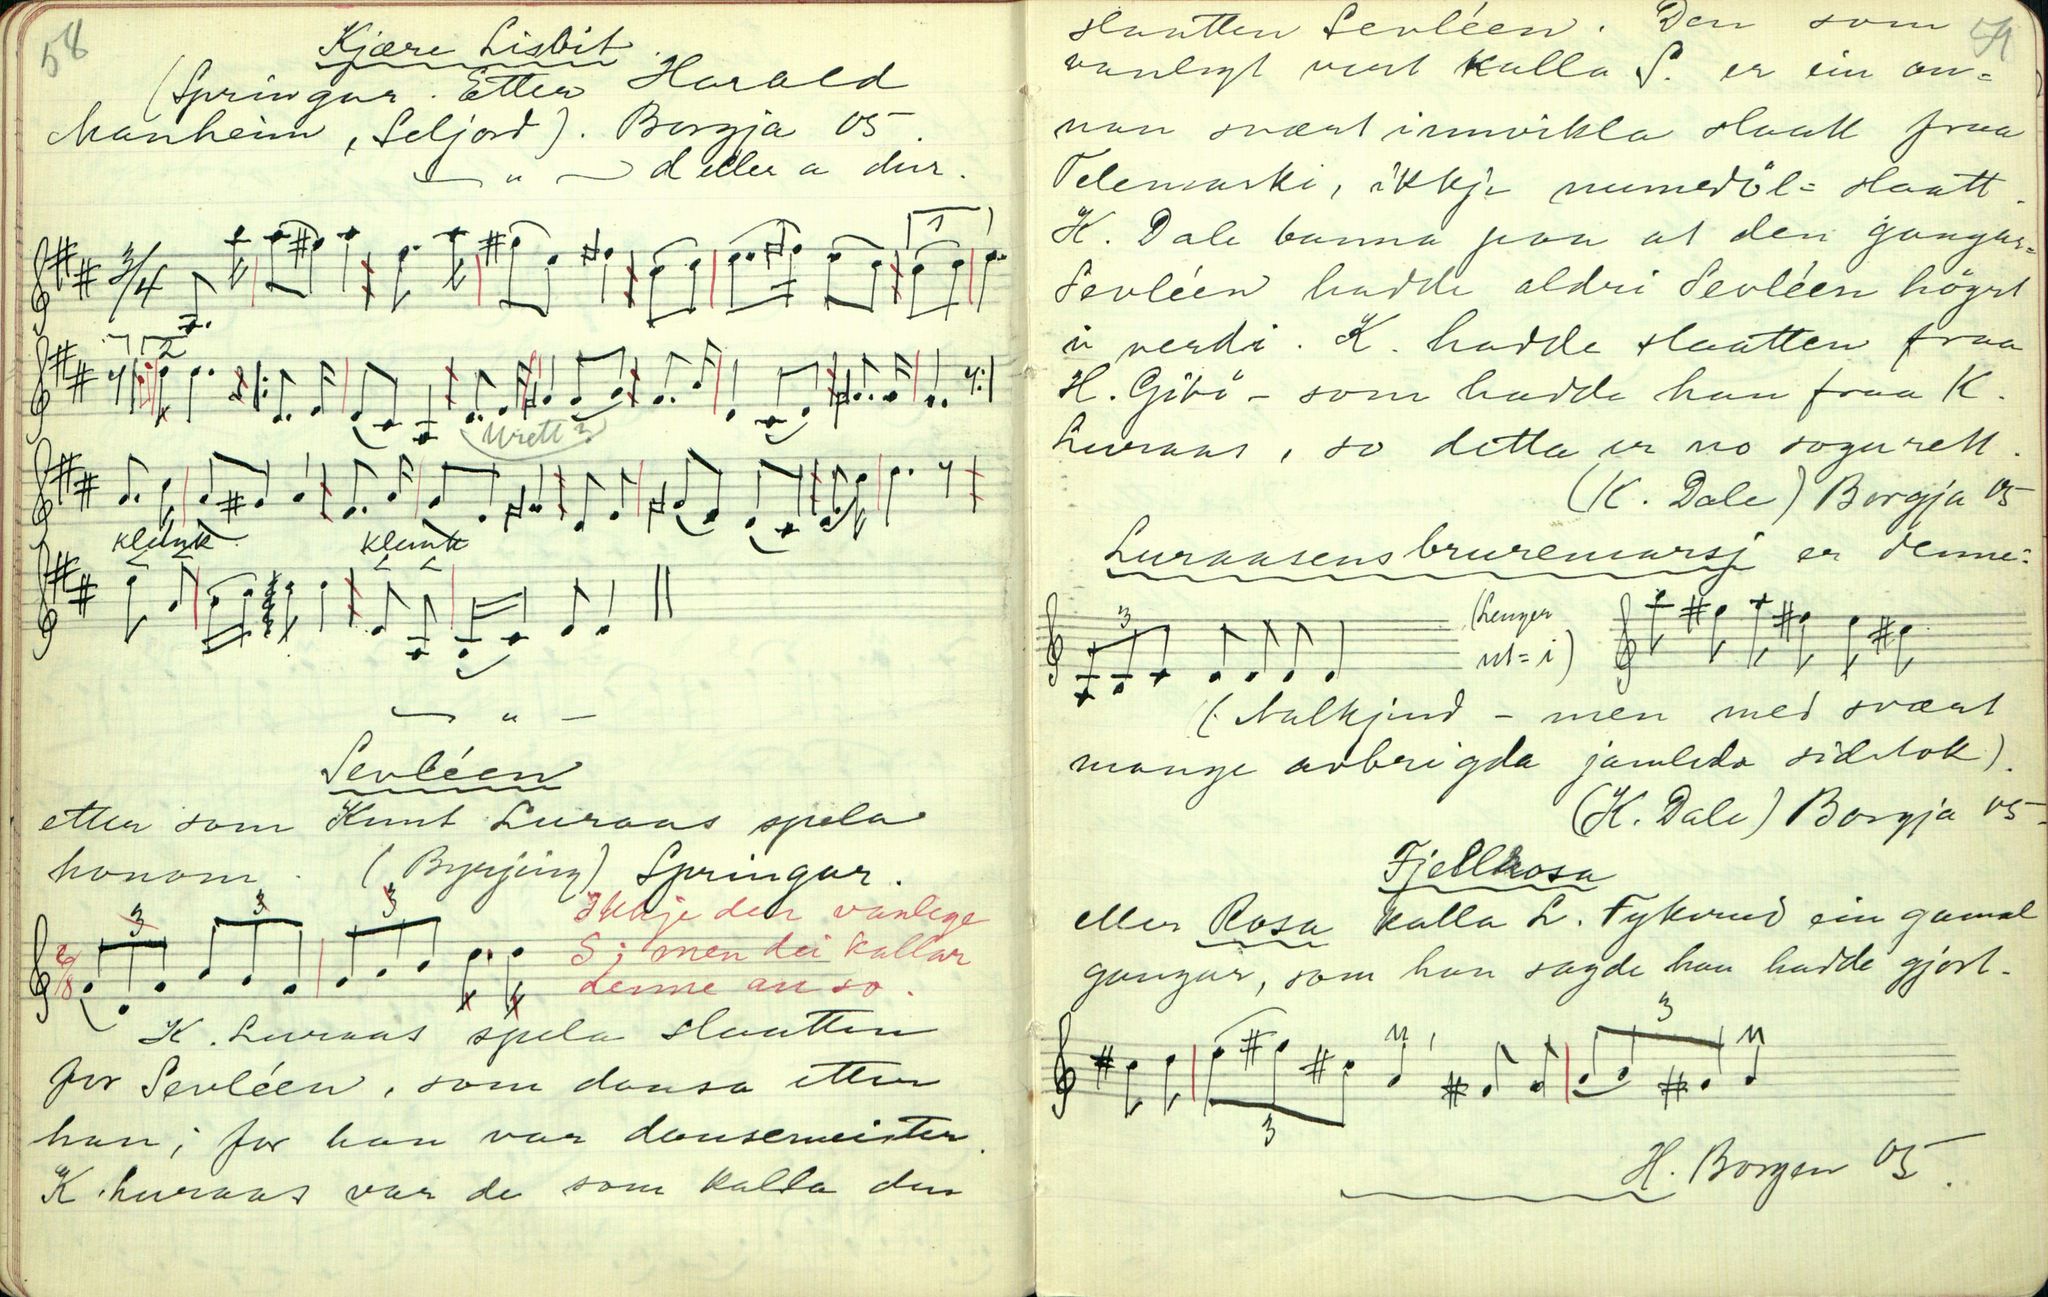 58
Kjære Lisbit.
(Springar. Etter Harald
Manheim, Seljord). Borgja 05.
— " — d eller a dur.
3/4
1
2
Urett?
klunk klunk
— " —
Sevléen
etter som Knut Luraas spela
honom. (Byrjing) Springar.
3 3 3
6/8
Ikkje den vanlege
S; men dei kallar
denne an so.
K. Luraas spela slaatten
for Sevléen, som dansa etter
han; for han var dansemeister.
K. Luraas var de som kalla den
slaatten Sevléen. Den som
vanlegt vert kalla S. er ein an=
nan svært innvikla slaatt fraa
Telemarki, ikkje numedöl= slaatt.
K. Dale banna paa at den gangar=
Sevléen hadde aldri Sevléen höyrt
i verdi. K. hadde slaatten fraa
H. Gibö - som hadde han fraa K.
Luraas, so detta er no sogurett.
(K. Dale) Borgja 05
Luraasens bruremarsj er denne:
3
(Lenger
ut= i)
(Nalkjend - men med svært
mange avbrigda jamleda sidstok).
(K. Dale) Borgja 05.
Fjellrosa
eller Rosa kalla L. Fykerud ein gamal
gangar, som han sagde han hadde gjort.
3
3
H. Borgen 05.